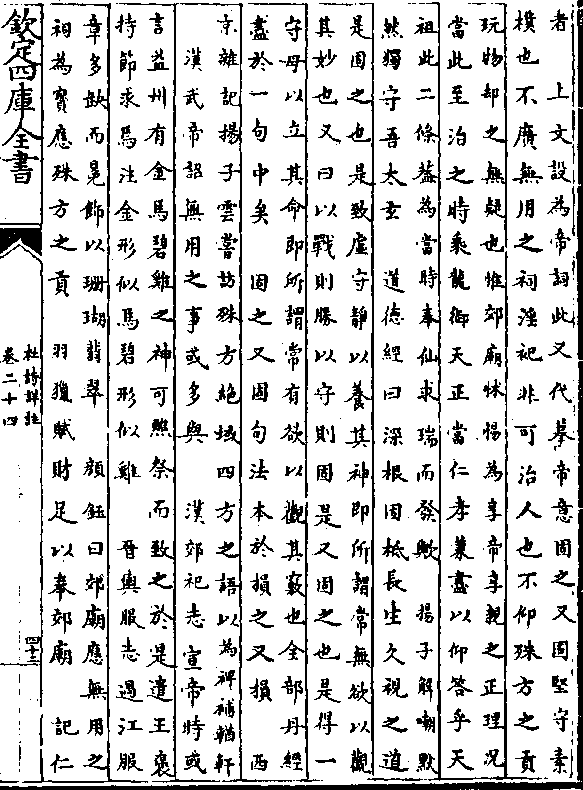 者　上文設為帝詞此又代摹帝意固之又固堅守素
樸也不廣無用之祠淫祀非可治人也不仰殊方之貢
玩物却之無疑也惟郊廟怵惕為享帝享親之正理況
當此至治之時乘龍御天正當仁孝兼盡以仰答乎天
祖此二條葢為當時奉仙求瑞而發歟　揚子解嘲默
然獨守吾太玄　道德經曰深根固柢長生久視之道
是固之也是致虛守靜以養其神即所謂常無欲以觀
其妙也又曰以戰則勝以守則固是又固之也是得一
守母以立其命即所謂常有欲以觀其竅也全部丹經
盡於一句中矣　固之又固句法本於損之又損　西
京雜記揚子雲嘗訪殊方絶域四方之語以為裨補輶軒
漢武帝詔無用之事或多與　漢郊祀志宣帝時或
言益州有金馬碧雞之神可醮祭而致之於是遣王襃
持節求焉注金形似馬碧形似雞　晉輿服志過江服
章多缺而冕飾以珊瑚翡翠　顔鈺曰郊廟應無用之
祠為賓應殊方之貢　羽獵賦財足以奉郊廟　記仁
欽定四庫全書
杜詩詳註
卷二十四
四十三